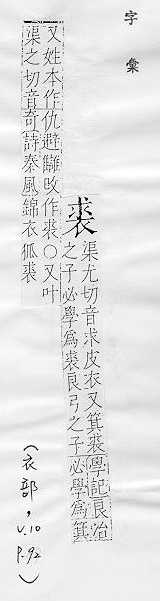 字彙
裘
渠尤切音求皮衣又箕裘學記良冶
之子必學爲裘良弓之子必學爲箕
又姓本作仇避讎改作裘○又叶
渠之切音奇詩秦風錦衣狐裘
(衣部,V.10
P.92)